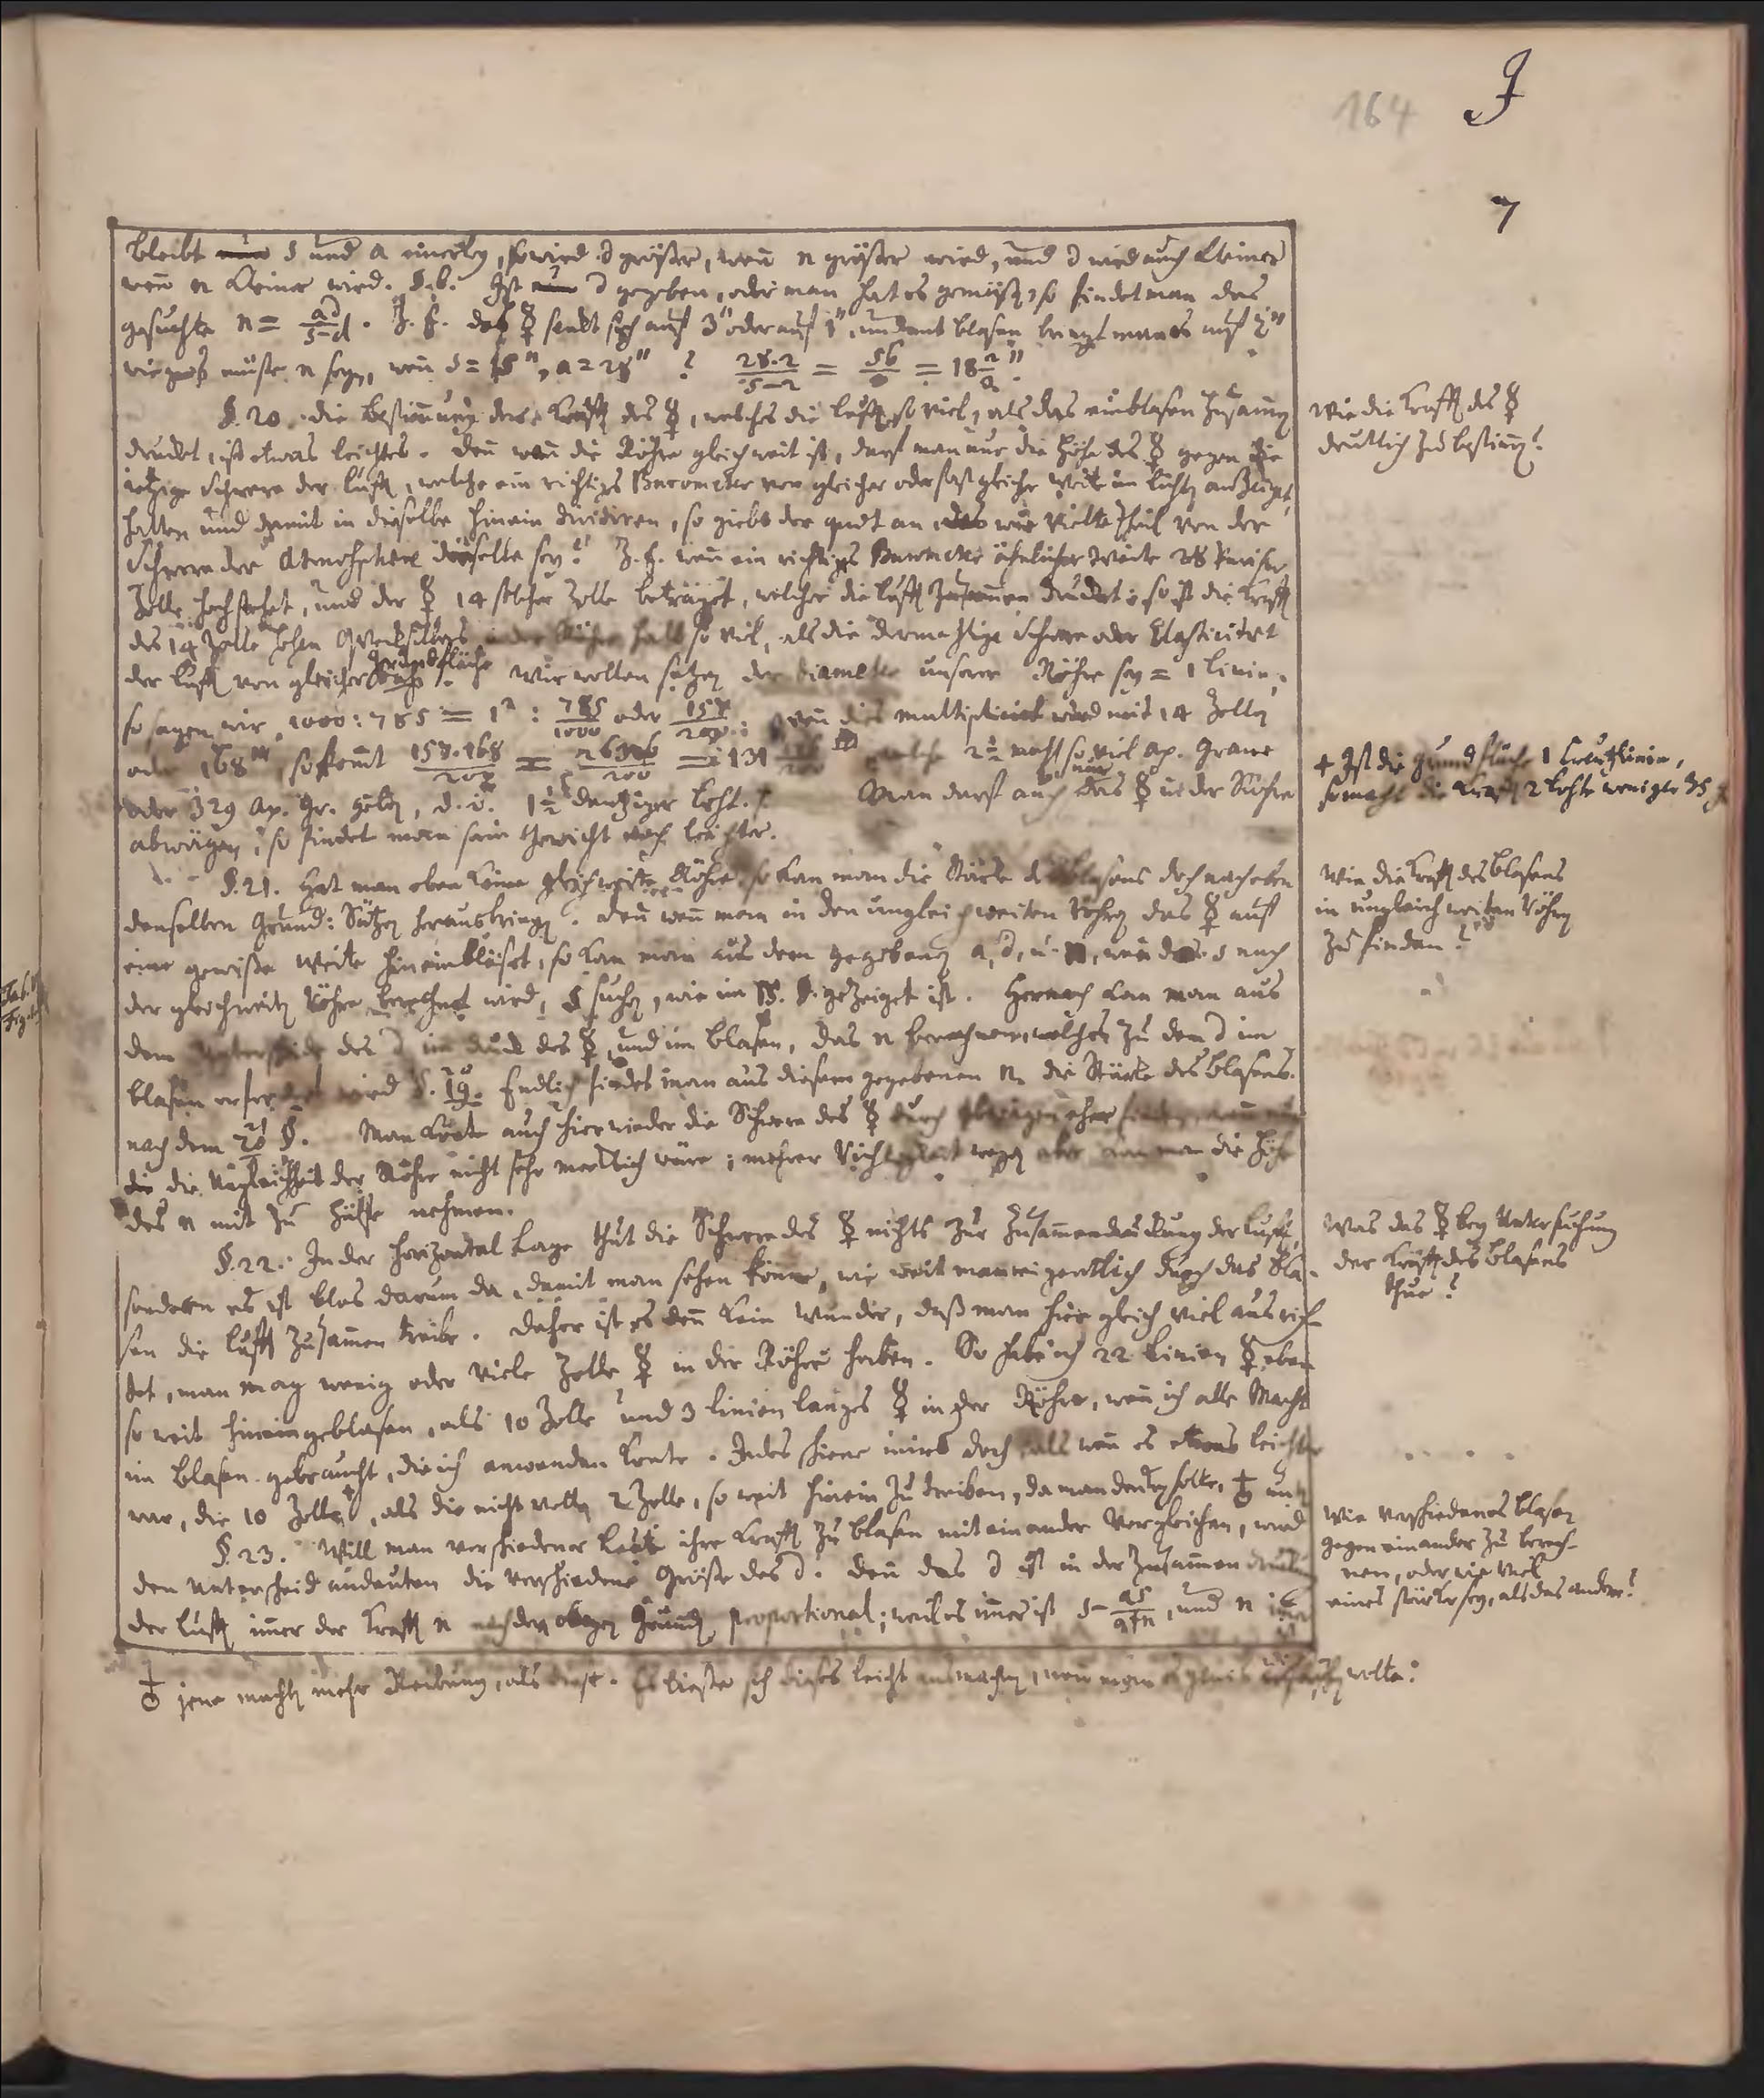 164
7
bleibt s und a einerley, so wird d größer, wenn n größer wird, und d wird auch kleiner
wenn n kleiner wird. Ist d gegeben, oder man hat es gemäßen, so findet man das
gesuchte n = ad/s-d. Z. E. das ☿ senkt sich auf 3" oder auf 1", und mit blasen bringt man es auf 2"
wie groß müste n seyn, wenn s = 15", a = 28" ? 28.2/5-2 = 56/ = 18 2/
§. 20. die Bestimmung der Krafft des ☿, welches die lufft so viel, als das einblasen zusammen
drucket, ist etwas leichtes. denn wenn die Röhre gleich weit ist, darf man nur die Höhe des ☿ gegen die
ietzige Schwere der lufft, welche ein richtiges Barometer von gleicher oder fast gleicher Weite im lichten anzeiget,
halten und damit in dieselbe hinein dividiren, so giebt der quot an, wie vielte Theil von der
Schwere der Atmosphere dieselbe sey? Z. E. wenn ein richtiges Barometer ähnlicher Weite 28 Pariser
Zolle hoch stehet, und der ☿ 14 solcher Zolle beträget, welcher die lufft zusammen drucket; so ist die Krafft
des 14 Zolle hohen Quecksilbers in der Röhre halb so viel, als die dermahlige Schwere oder Elasticitæt
der lufft von gleicher Grundfläche. Wir wollen setzen der Diameter unserer Röhre sey = 1 Linie,
so sagen wir, 1000 : 785 = 1² : 785/1000 oder 157/200: wenn dies multiplicirt wird mit 14 Zollen
oder 168''', so kommt 157.168/200 = 26376/200 = 131 /200 welche 2 1/2 mahl so viel Ap. Grane
oder 329 Ap. Gr. geben, d. i. 1 1/2 dantziger loht. Man darf auch nur das ☿ in der Röhre
abwägen, so findet man sein Gewicht noch leichter.
§. 21. Hat man eben keine gleichweite Röhre, so kan man die Stärke des blasens doch nach eben
denselben Grund: Sätzen herausbringen. denn wenn man in den ungleich weiten Röhren das ☿ auf
eine gewisse Weite hineinbläset, so kan man aus dem gegebenen a, d, u. n, wenn das s nach
der gleichweiten Röhre berechnet wird, s suchen, wie im §. gezeiget ist. Hernach kan man aus
dem Unterscheide des d im druck des ☿, und im blasen, das n berechnen, welches zu dem d im
blasen erfordert wird §. 19. Endlich findet man aus diesem gegebenen n die Stärke des blasens
nach dem 20 §. Man könte auch hier wieder die Schwere des ☿ durch abwägen eher finden, wenn nur
die Ungleichheit der Röhre nicht sehr mercklich wäre; mehrer Richtigkeit wegen aber kan man die Höhe
des n mit zu Hülfe nehmen.
§. 22. In der horizontal Lage thut die Schwere des ☿ nichts zur Zusammendruckung der lufft,
sondern es ist blos darum da, damit man sehen könne, wie weit man eigentlich durch das bla-
sen die lufft zusammen treibe. daher ist es denn kein Wunder, daß man hier gleich viel ausrich-
tet, man mag wenig oder viele Zolle ☿ in der Röhre haben. So habe ich 22 Linien ☿ eben
so weit hineingeblasen, als 10 Zolle und 3 Linien langes ☿ in der Röhre, wenn ich alle Macht
im blasen gebraucht, die ich anwenden konte. Indes schiene mirs doch, als wenn es etwas leichter
war, die 10 Zolle, als die nicht vollen 2 Zolle, so weit hinein zu treiben, da man dencken solte,
§. 23. Will man verschiedener Leute ihre Krafft zu blasen mit einander vergleichen, wird
den Unterscheid andeuten die verschiedene Größe des d. denn das d ist in der Zusammendruckung
der lufft immer der Krafft n nach den obigen Gründen proportional; weil es immer ist s - as/a+n, und n
jene machten mehr Reibung, als diese. Es ließe sich dieses leicht ausmachen, wenn man wolte.
Wie die Krafft des ☿
deutlich zu bestimmen?
+ Ist die Grundfläche 1 Linie,
so macht die 2 lohte weniger
Wie die Krafft des blasens
in ungleich weiten Röhren
zu finden?
Was das ☿ bey Untersuchung
der Krafft des blasens
thue?
Wie verschiedenes blasen
gegen einander zu berech-
nen, oder wie viel
eines stärker sey, als das andere?